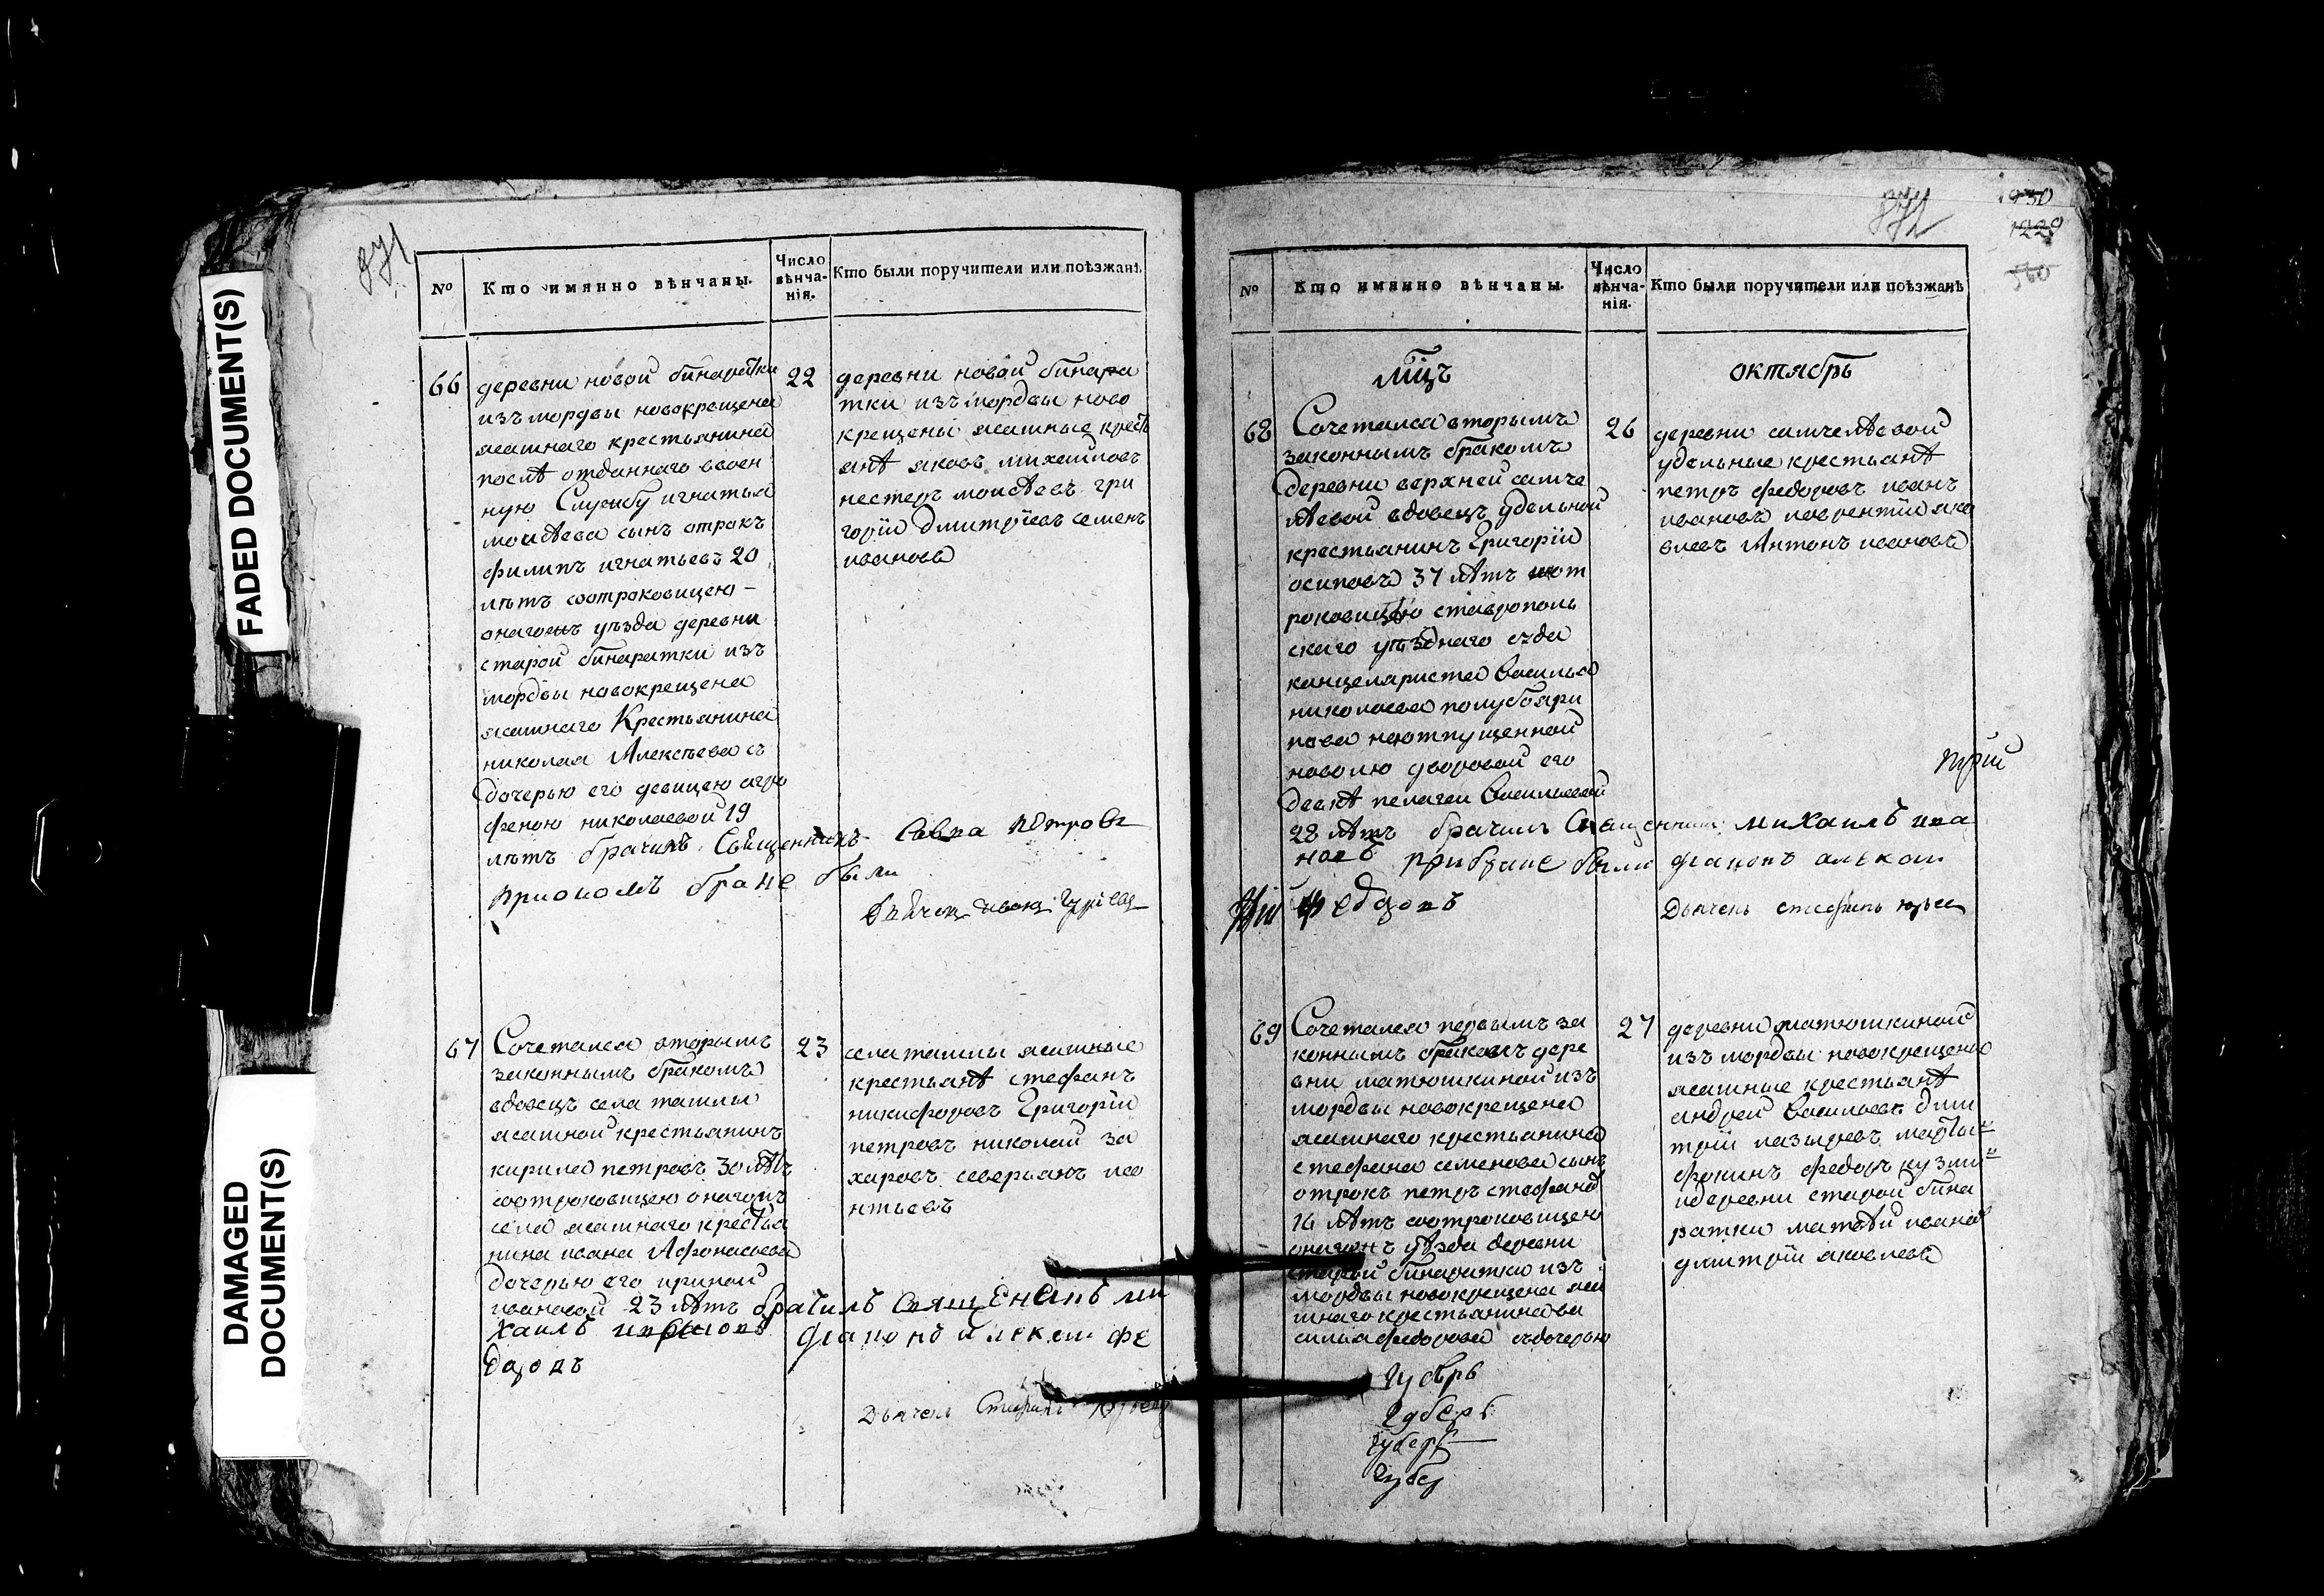 FADED DOCUMENT(S)
DAMAGED
DOCUMENT(S)
871
№
Кто имянно вѣнчаны.
Число
вѣнча-
нія.
Кто были поручители или поѣзжанѣ
66
деревни новой бинаратки
изъ мордвы новокрещена
ясашнаго крестьянина
послѣ отданнаго ввоен
ную Службу игнатья
моисѣева сынъ отрокъ
филипъ игнатьевъ 20
лѣтъ соотроковицею -
онагожъ уѣзда деревни
старой бинаратки изъ
мордвы новокрещена
ясашнаго Крестьянина
николая Алексѣева съ
дочерью его девицею огро
феною николаевой 19
лѣтъ брачилъ Священникъ Савва Петровъ
приономъ браке были
22
деревни новой бинара
тки изъ мордвы ново
крещены ясашные крест
янѣ яковъ михайловъ
нестеръ моисѣевъ гри
горїй дмитрїевъ семенъ
ивановъ
67
Сочетался вторымъ
законнымъ бракомъ
вдовецъ села ташлы
ясашной крестьянинъ
кирила петровъ 30 лѣтъ
соотроковицею онагожъ
села ясашнаго крестья
нина ивана Афонасьева
дочерью его ириной
ивановой 23 лѣтъ брачилъ Священикъ ми
хаилъ ивановъ диаконъ алексѣй фе
доровъ
23
села ташлы ясашные
крестьянѣ стефанъ
никифоровъ Григорїй
петровъ николай за
харовъ северьянъ лео
нтьевъ
Дьячекъ Стефанъ
871
1230
1229
№
Кто имянно вѣнчаны.
Число
вѣнча-
нія.
Кто были поручители или поѣзжанѣ
мїцъ
октябрь
68
Сочетался вторымъ
законнымъ бракомъ
деревни верхней самче
лѣевой вдовецъ удельной
крестьянинъ Григорїй
осиповъ 37 лѣтъ сот
роковицею ставрополь
скаго уѣзднаго суда
канцеляриста Василья
николаева полубояри
нова наотпущенной
наволю дворовой его
девкѣ пелагеи Васильевой
28 лѣтъ брачилъ Священникъ михаилъ ива
новъ прибраке были диаконъ алексей
федоровъ
26
деревни самчелѣевой
удельные крестьянѣ
петръ федоровъ иванъ
ивановъ лаврентїй яко
влевъ Антонъ ивановъ
Дьячекъ стефанъ
69
Сочетался первымъ за
коннымъ бракомъ дере
вни матюшкиной изъ
мордвы новокрещена
ясашнаго крестьянина
стефана семенова сынъ
отрокъ петръ стефановъ
16 лѣтъ соотроковицею
онагожъ уѣзда деревни
старой бинаратки изъ
мордвы новокрещена яса
шнаго крестьянина ва
силья федорова съдочерью
27
деревни матюшкиной
изъ мордвы новокрещена
ясашные крестьянѣ
андрей Васильевъ дми
трїй лазыревъ мартын
фокинъ федоръ кузмин
идеревни старой бина
ратки матвѣй ивановъ
дмитрїй яковлевъ